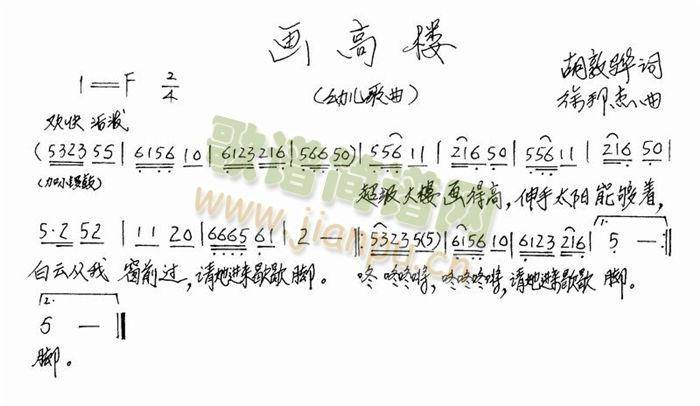 画高楼
1=F 2/4
(幼儿歌曲)
胡敦骅词
徐邦杰曲
欢快 活泼
(5323 55 | 6156 10 | 6123 216 | 566 50) | 556 11 | 216 50 | 556 11 | 216 50 |
(加小镲鼓) 超级大楼画得高,伸手太阳能够着,
5·2 52 | 11 20 | 6665 61 | 2 — |: 5323 5(5) | 6156 10 | 6123 216 | 1. 5 — :|
白云从我窗前过,请她进来歇歇脚。 咚咚咚锵,咚咚咚锵,请她进来歇歇脚。
2.
5 — ‖
脚。
歌谱简谱网
www.jianpu.cn